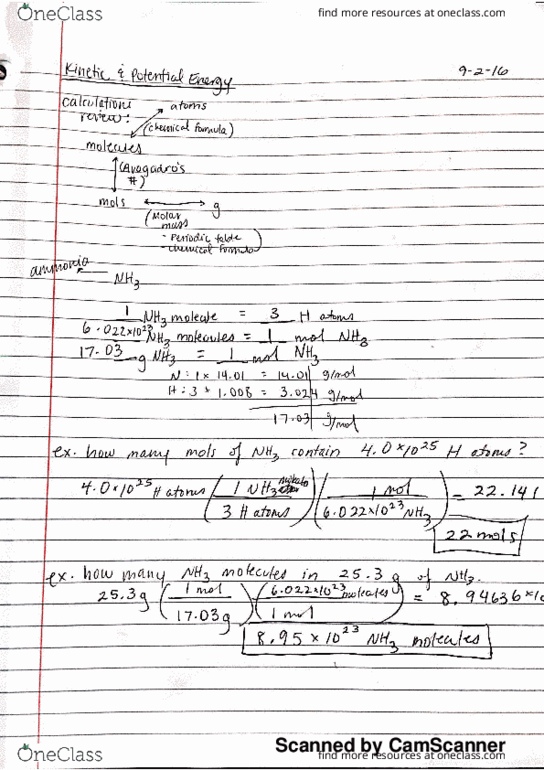 OneClass
find more resources at oneclass.com
Kinetic & Potential Energy
9-2-16
calculations
review:
atoms
(chemical formula)
molecules
(Avogadro's
#)
mols
g
(Molar
mass
- Periodic table
- chemical formula)
ammonia
NH3
1 NH3 molecule = 3 H atoms
6.022×10^23 NH3 molecules = 1 mol NH3
17.03 g NH3 = 1 mol NH3
N: 1 × 14.01 = 14.01 g/mol
H: 3 × 1.008 = 3.024 g/mol
17.03 g/mol
ex. how many mols of NH3 contain 4.0×10^25 H atoms?
4.0×10^25 H atoms (1 NH3 / 3 H atoms) (1 mol / 6.022×10^23 NH3) = 22.141
22 mols
ex. how many NH3 molecules in 25.3 g of NH3.
25.3g (1 mol / 17.03g) (6.022×10^23 molecules / 1 mol) = 8.94636×10
8.95 × 10^23 NH3 molecules
Scanned by CamScanner
OneClass
find more resources at oneclass.com